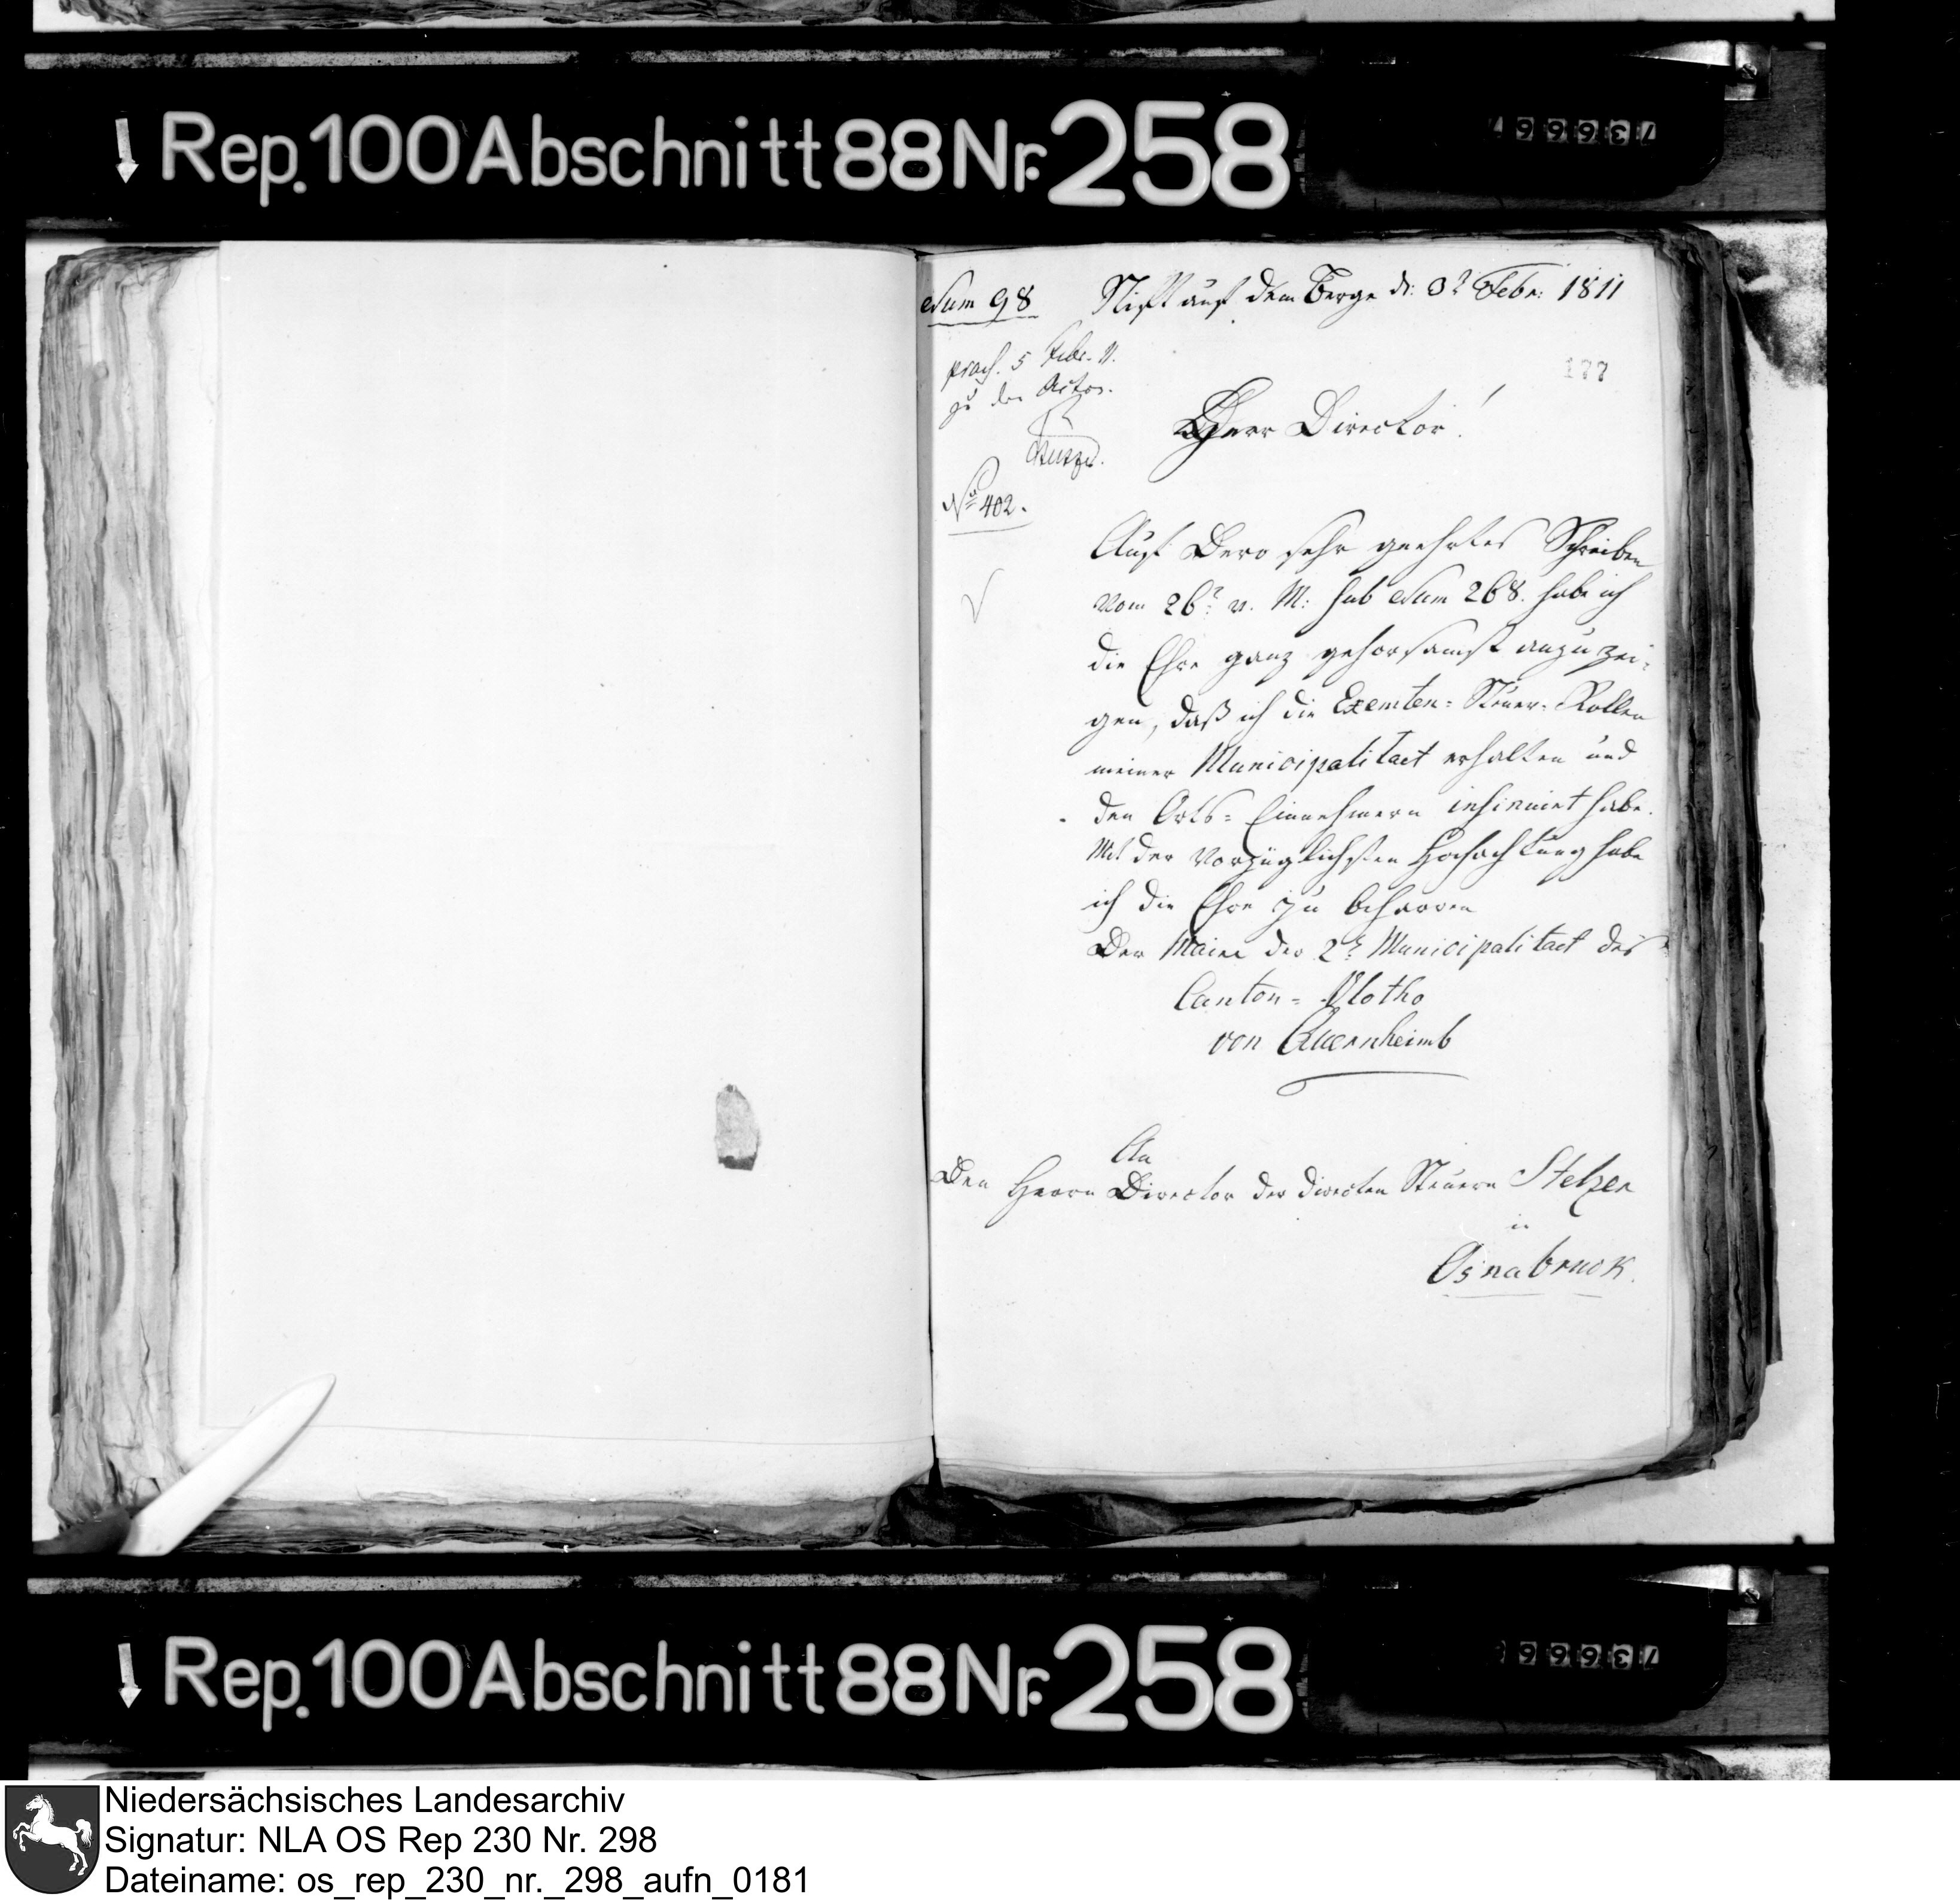 ↓ Rep. 100 Abschnitt 88 Nr. 258
Num 98
Stift auf dem Berge d: 3t Febr: 1811
177
praes. 5 Febr. 11.
zu den Acten.
No 402.
Herr Director!
Auf Dero sehr geehrtes Schreiben
vom 26t v. M: sub Num 268. habe ich
die Ehre ganz gehorsamst anzuzei-
gen, daß ich die Exemten-Steuer-Rollen
meiner Municipalitaet erhalten und
den Orts-Einnehmern insinuiret habe.
Mit der vorzüglichsten Hochachtung habe
ich die Ehre zu beharren
Der Maire der 2t Municipalitaet des
Canton-Vlotho
von Quernheimb
An
Den Herrn Director der directen Steuern Stelzer
in
Osnabruck.
↓ Rep. 100 Abschnitt 88 Nr. 258
Niedersächsisches Landesarchiv
Signatur: NLA OS Rep 230 Nr. 298
Dateiname: os_rep_230_nr._298_aufn_0181